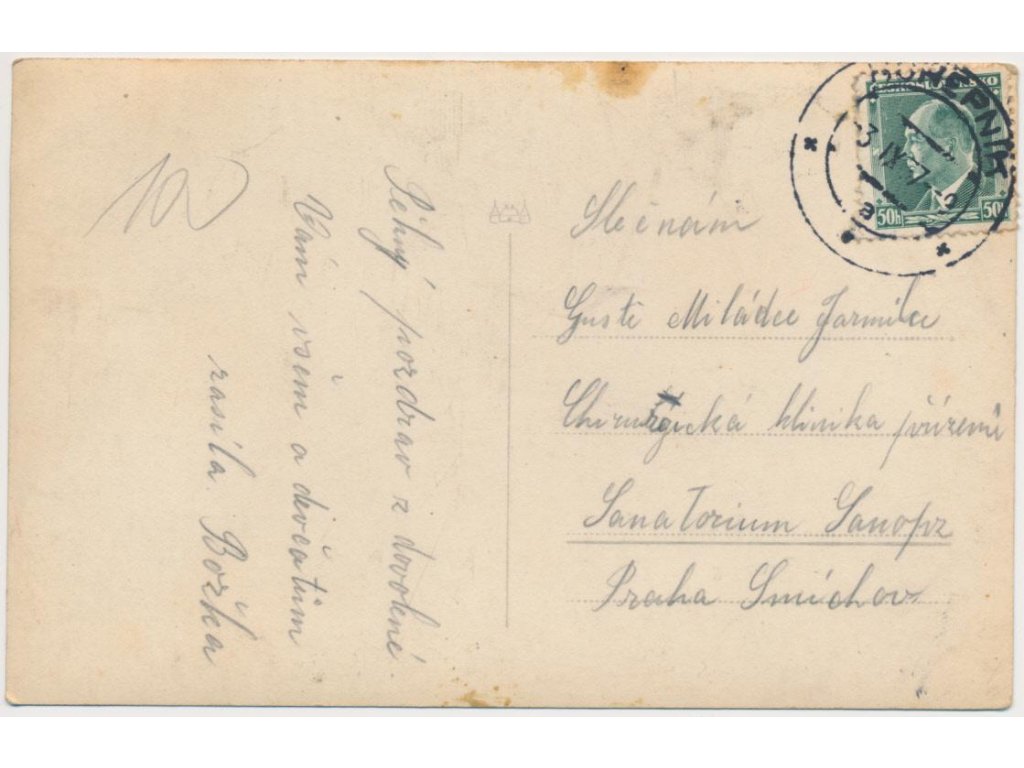 Pěkný pozdrav z dovolené
Vám všem a děvčatům
zasílá Božka
Slečnám
Gusti Miládce Jarmilce
Chirurgická klinika přízemí
Sanatorium Sanopz
Praha Smíchov
ČESKOSLOVENSKO
50h 50h
3 IX 37
10